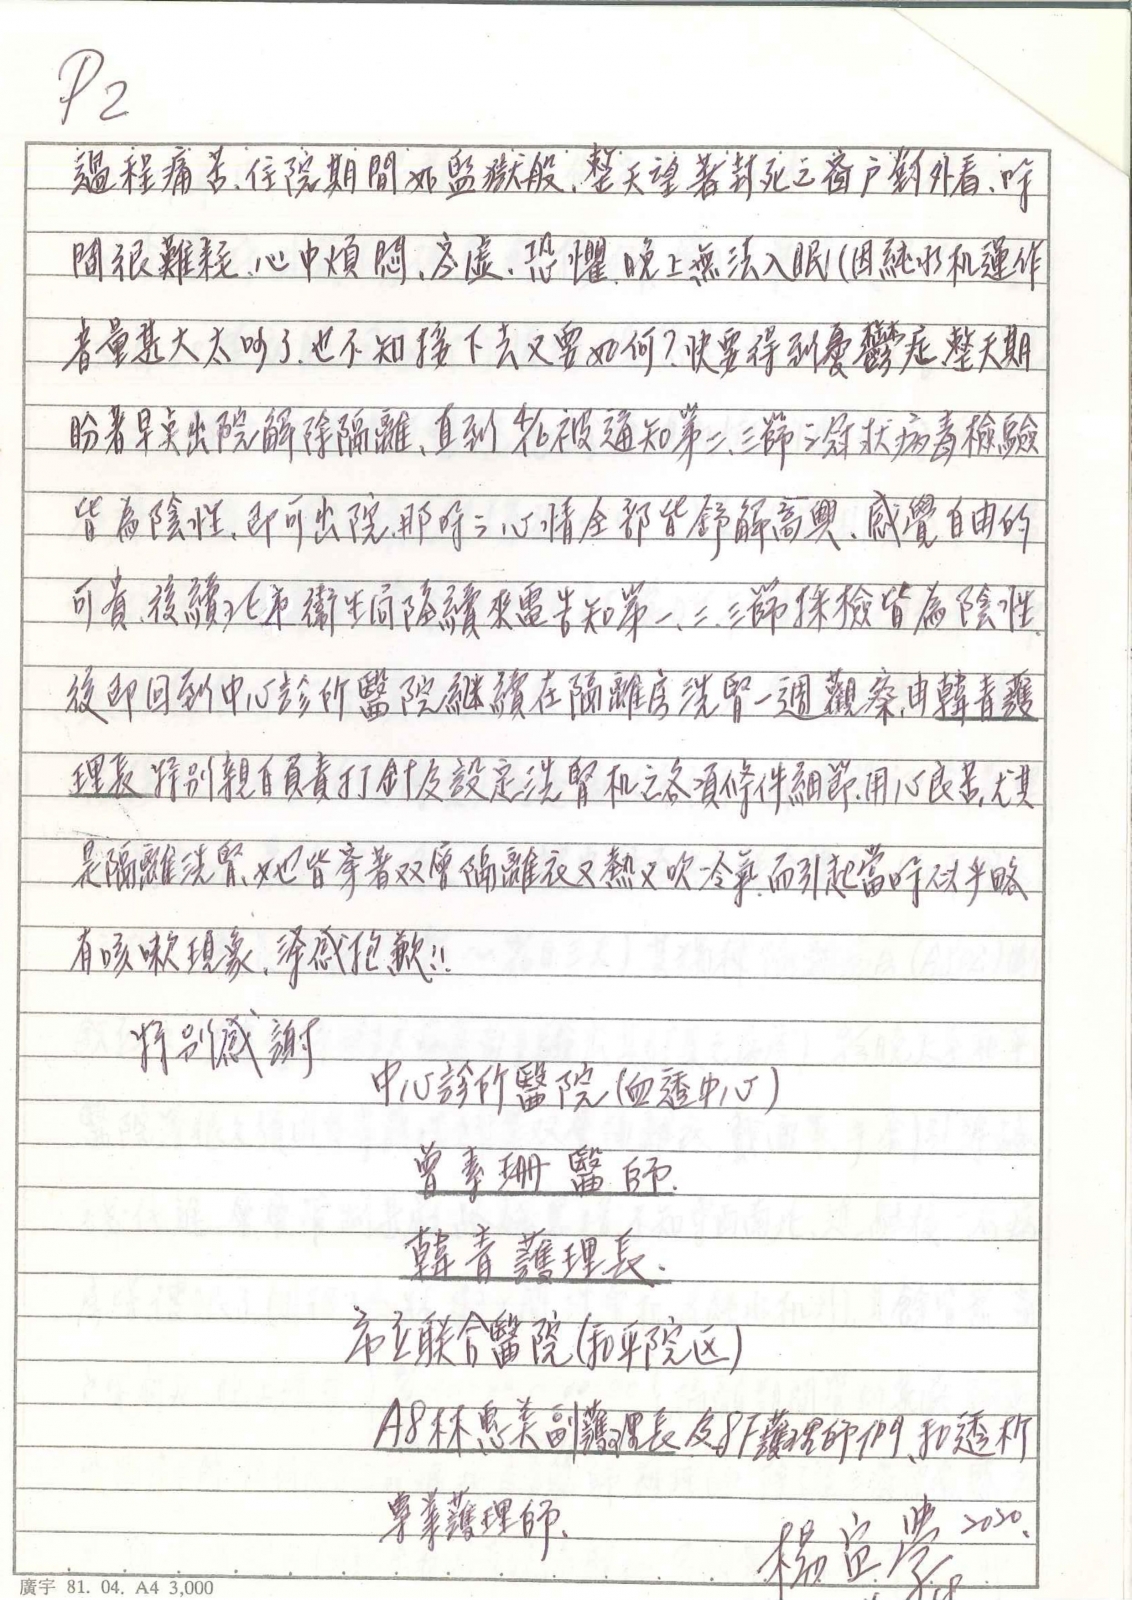 P2
過程痛苦、住院期間如監獄般、整天望著封死之窗戶對外看、時
間很難耗、心中煩悶、空虛、恐懼、晚上無法入眠(因純水机運作
音量甚大太吵了、也不知接下去又要如何?快要得到憂鬱症、整天期
盼著早點出院解除隔離、直到 被通知第二、三篩之冠狀病毒檢驗
皆為陰性、即可出院、那時之心情全部皆舒解高興、感覺自由的
可貴、後續北市衛生局陸續來電告知第一、二、三篩採檢皆為陰性、
後即回到中心診所醫院繼續在隔離房洗腎一週觀察、由韓青護
理長特別親自負責打針及設定洗腎机之各項條件細節、用心良苦、尤其
是隔離洗腎、她皆穿著双層隔離衣又熱又吹冷氣、而引起當時似乎略
有咳嗽現象、深感抱歉!!
特別感謝
中心診所醫院(血透中心)
曾素珊醫師、
韓青護理長、
市立联合醫院(和平院区)
A8林惠美副護理長及8F護理師們、和透析
專業護理師、
2020.
楊宜
廣宇 81. 04. A4 3,000